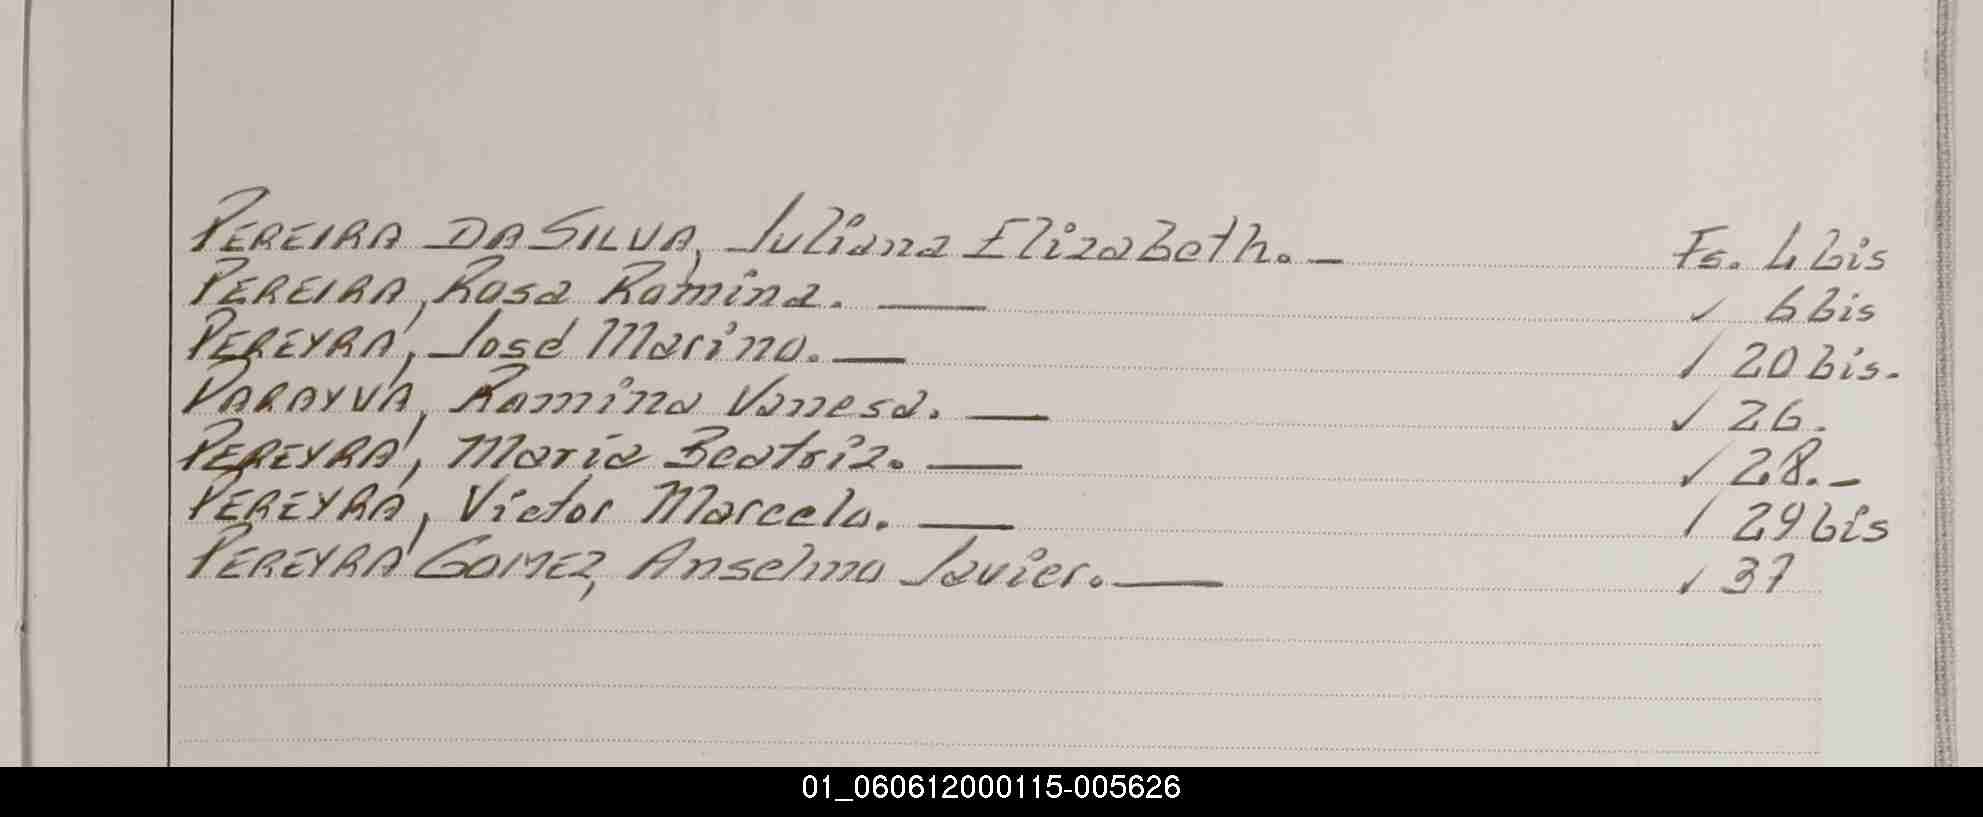 PEREIRA DA SILVA, Juliana Elizabeth. — Fs. 4 bis
PEREIRA, Rosa Ramina. — ✓ 6 bis
PEREYRA, José Marino. — / 20 bis.
PARAYVA, Ramina Vanesa. — ✓ 26.
PEREYRA, Maria Beatriz. — ✓ 28. —
PEREYRA, Victor Marcelo. — / 29 bis
PEREYRA GOMEZ, Anselmo Javier. — ✓ 37
01_060612000115-005626